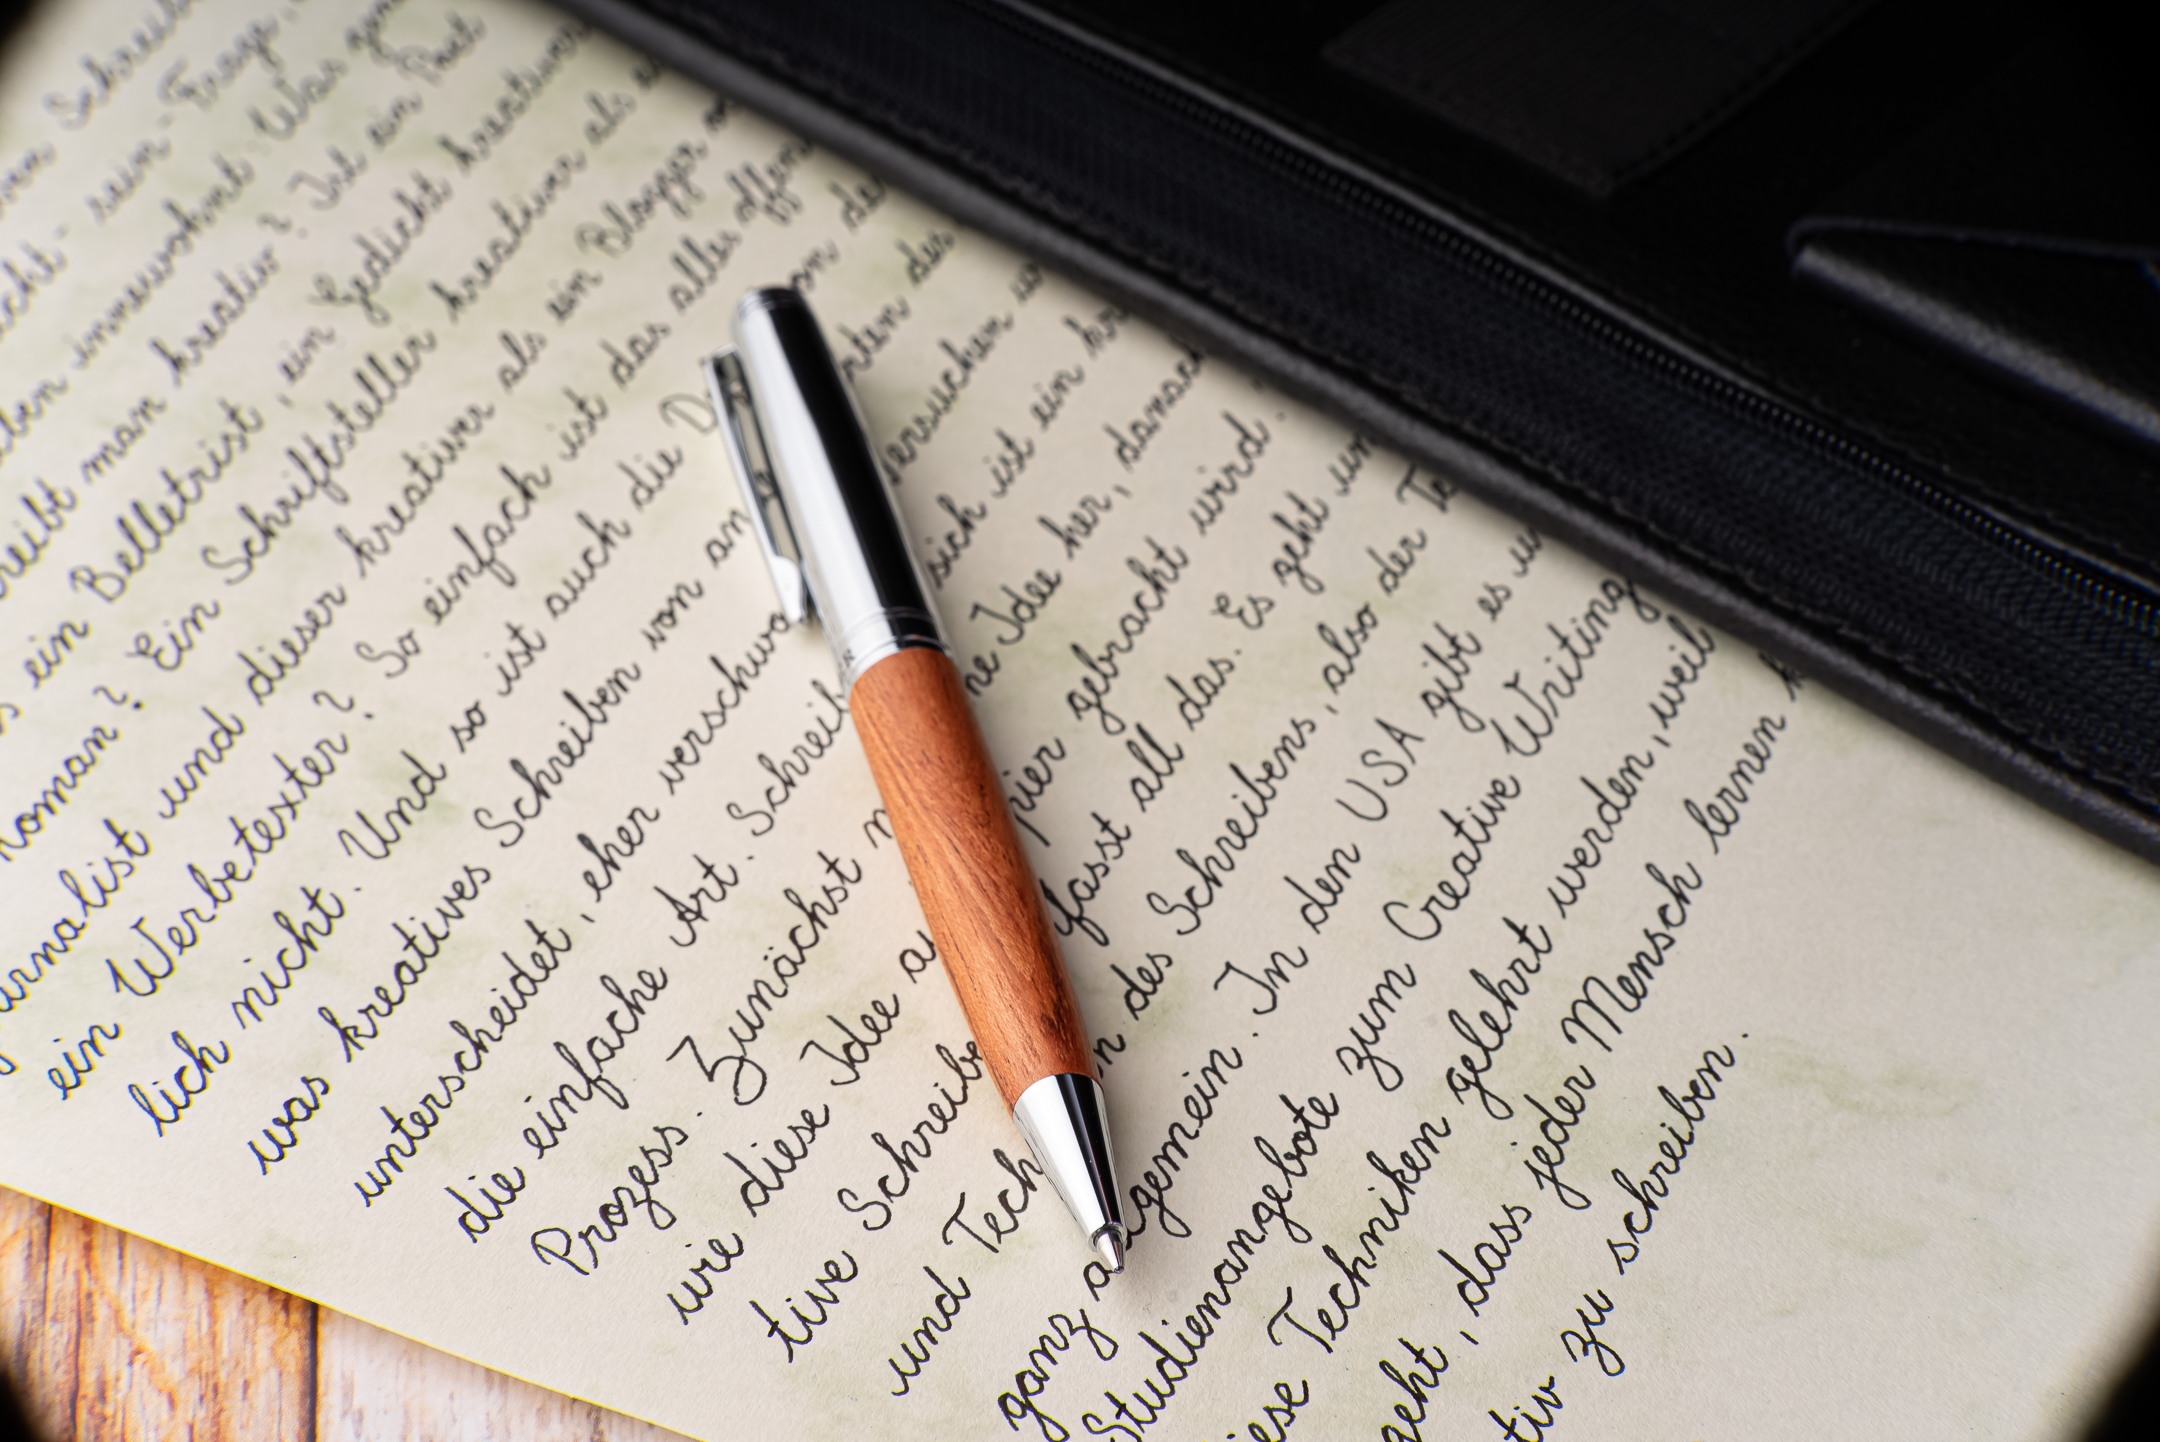 Schreib
cht - sein - Frage,
ben innewohnt. Was
reibt man kreativ? Ist ein Poet
ein Belletrist, ein Gedicht kreativer
Roman? Ein Schriftsteller kreativer als
urnalist und dieser kreativer als ein Blogger
ein Werbetexter? So einfach ist das alles offen
lich nicht. Und so ist auch die
was kreatives Schreiben von an
unterscheidet, eher verschwo versuchen
die einfache Art. Schreib sich ist ein kr
Prozess. Zunächst ne Idee her, danach
wie diese Idee a pier gebracht wird.
tive Schreibe fasst all das. Es geht um
und Tech n des Schreibens, also der Te
ganz a lgemein. In den USA gibt es u
Studienangebote zum Creative Writing
iese Techniken gelehrt werden, weil
geht, dass jeder Mensch lernen k
tiv zu schreiben.